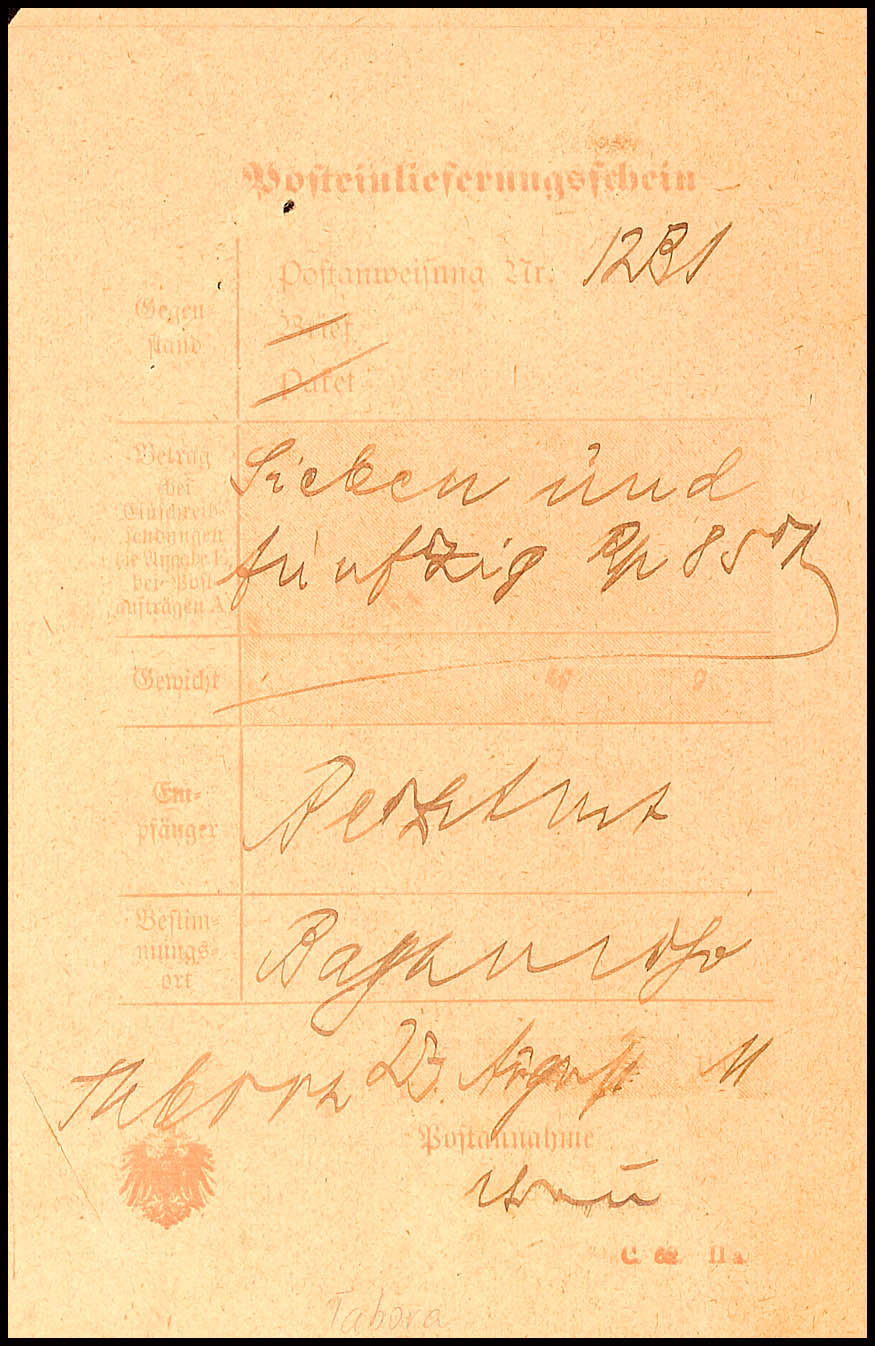 Posteinlieferungsschein
Postanweisung Nr. 1231
Gegen
stand
Brief
Paket
Betrag
bei
Einschreib-
sendungen
die Angabe E,
bei Post-
aufträgen A
Sieben und
fünfzig Rp 85
Gewicht
g
Em-
pfänger
Bestim-
mungs-
ort
Bagamojo
Tabora 23. August 11
Postannahme
C. 62 II a
Tabora